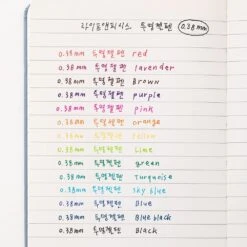 라이프앤피시스 투명젤펜 0.38mm
0.38mm 투명젤펜 red
0.38mm 투명젤펜 lavender
0.38mm 투명젤펜 Brown
0.38mm 투명젤펜 purple
0.38mm 투명젤펜 pink
0.38mm 투명젤펜 orange
0.38mm 투명젤펜 Yellow
0.38mm 투명젤펜 Lime
0.38mm 투명젤펜 green
0.38mm 투명젤펜 Turquoise
0.38mm 투명젤펜 sky blue
0.38mm 투명젤펜 Blue
0.38mm 투명젤펜 Blue black
0.38mm 투명젤펜 Black